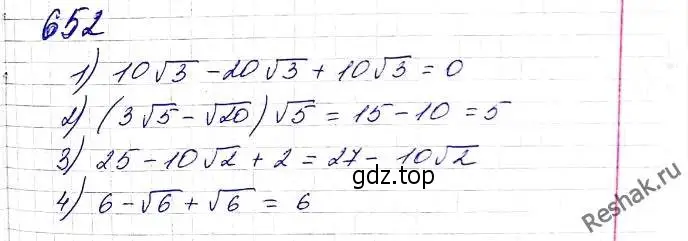 652
1) 10√3 - 20√3 + 10√3 = 0
2) (3√5 - √20)√5 = 15 - 10 = 5
3) 25 - 10√2 + 2 = 27 - 10√2
4) 6 - √6 + √6 = 6
gdz.top
Reshak.ru